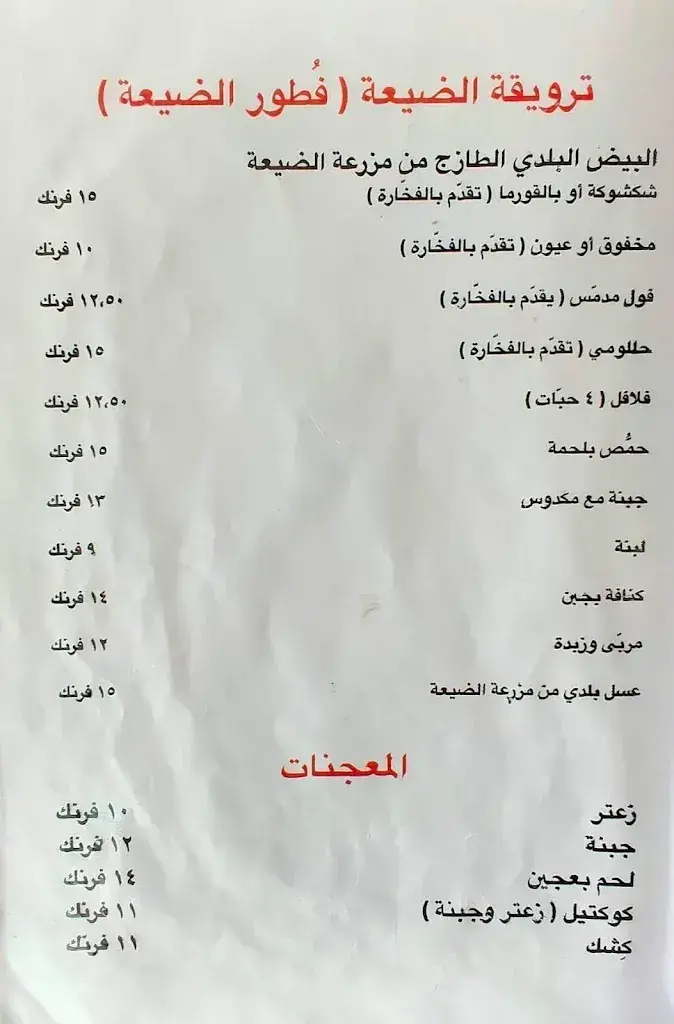 ترويقة الضيعة ( فُطور الضيعة )
البيض البلدي الطازج من مزرعة الضيعة
شكشوكة أو بالقورما ( تقدّم بالفخّارة ) ١٥ فرنك
مخفوق أو عيون ( تقدّم بالفخّارة ) ١٠ فرنك
فول مدمّس ( يقدّم بالفخّارة ) ١٢،٥٠ فرنك
حللومي ( تقدّم بالفخّارة ) ١٥ فرنك
فلافل ( ٤ حبّات ) ١٢،٥٠ فرنك
حمُّص بلحمة ١٥ فرنك
جبنة مع مكدوس ١٣ فرنك
لبنة ٩ فرنك
كنافة بجبن ١٤ فرنك
مربّى وزبدة ١٢ فرنك
عسل بلدي من مزرعة الضيعة ١٥ فرنك
المعجنات
زعتر ١٠ فرنك
جبنة ١٢ فرنك
لحم بعجين ١٤ فرنك
كوكتيل ( زعتر وجبنة ) ١١ فرنك
كِشك ١١ فرنك